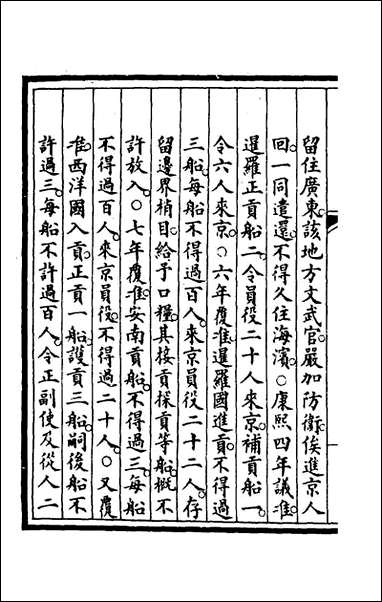 留住廣東。該地方文武官。嚴加防衛。俟進京人
回一同遣還。不得久住海濱。○康熙四年議准。
暹羅正貢船二。令員役二十人來京。補貢船一。
令六人來京。○六年覆准。暹羅國進貢。不得過
三船。每船不得過百人。來京員役二十二人。存
留邊界梢目。給予口糧。其接貢探貢等船。概不
許放入。○七年覆准。安南貢船。不得過三。每船
不得過百人。來京員役。不得過二十人。○又覆
准。西洋國入貢。正貢一船。護貢三船。嗣後船不
許過三。每船不許過百人。令正副使及從人二